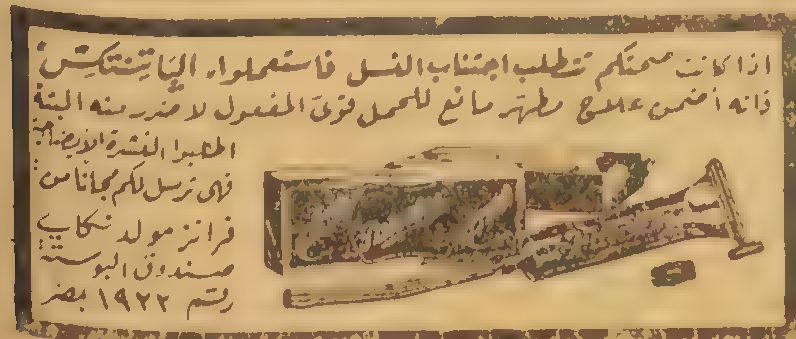 اذا كانت صحتكم تتطلب اجتناب النسل فاستعملواه الپاتنتكس
فانه أضمن علاج مطهر مانع للحمل قوى المفعول لا ضرر منه البتة
اطلبوا النشرة الايضاحية
فهى ترسل لكم مجانا من
فرانز مولد نكاب
صندوق البوستة
رقم ١٩٢٢ بمصر